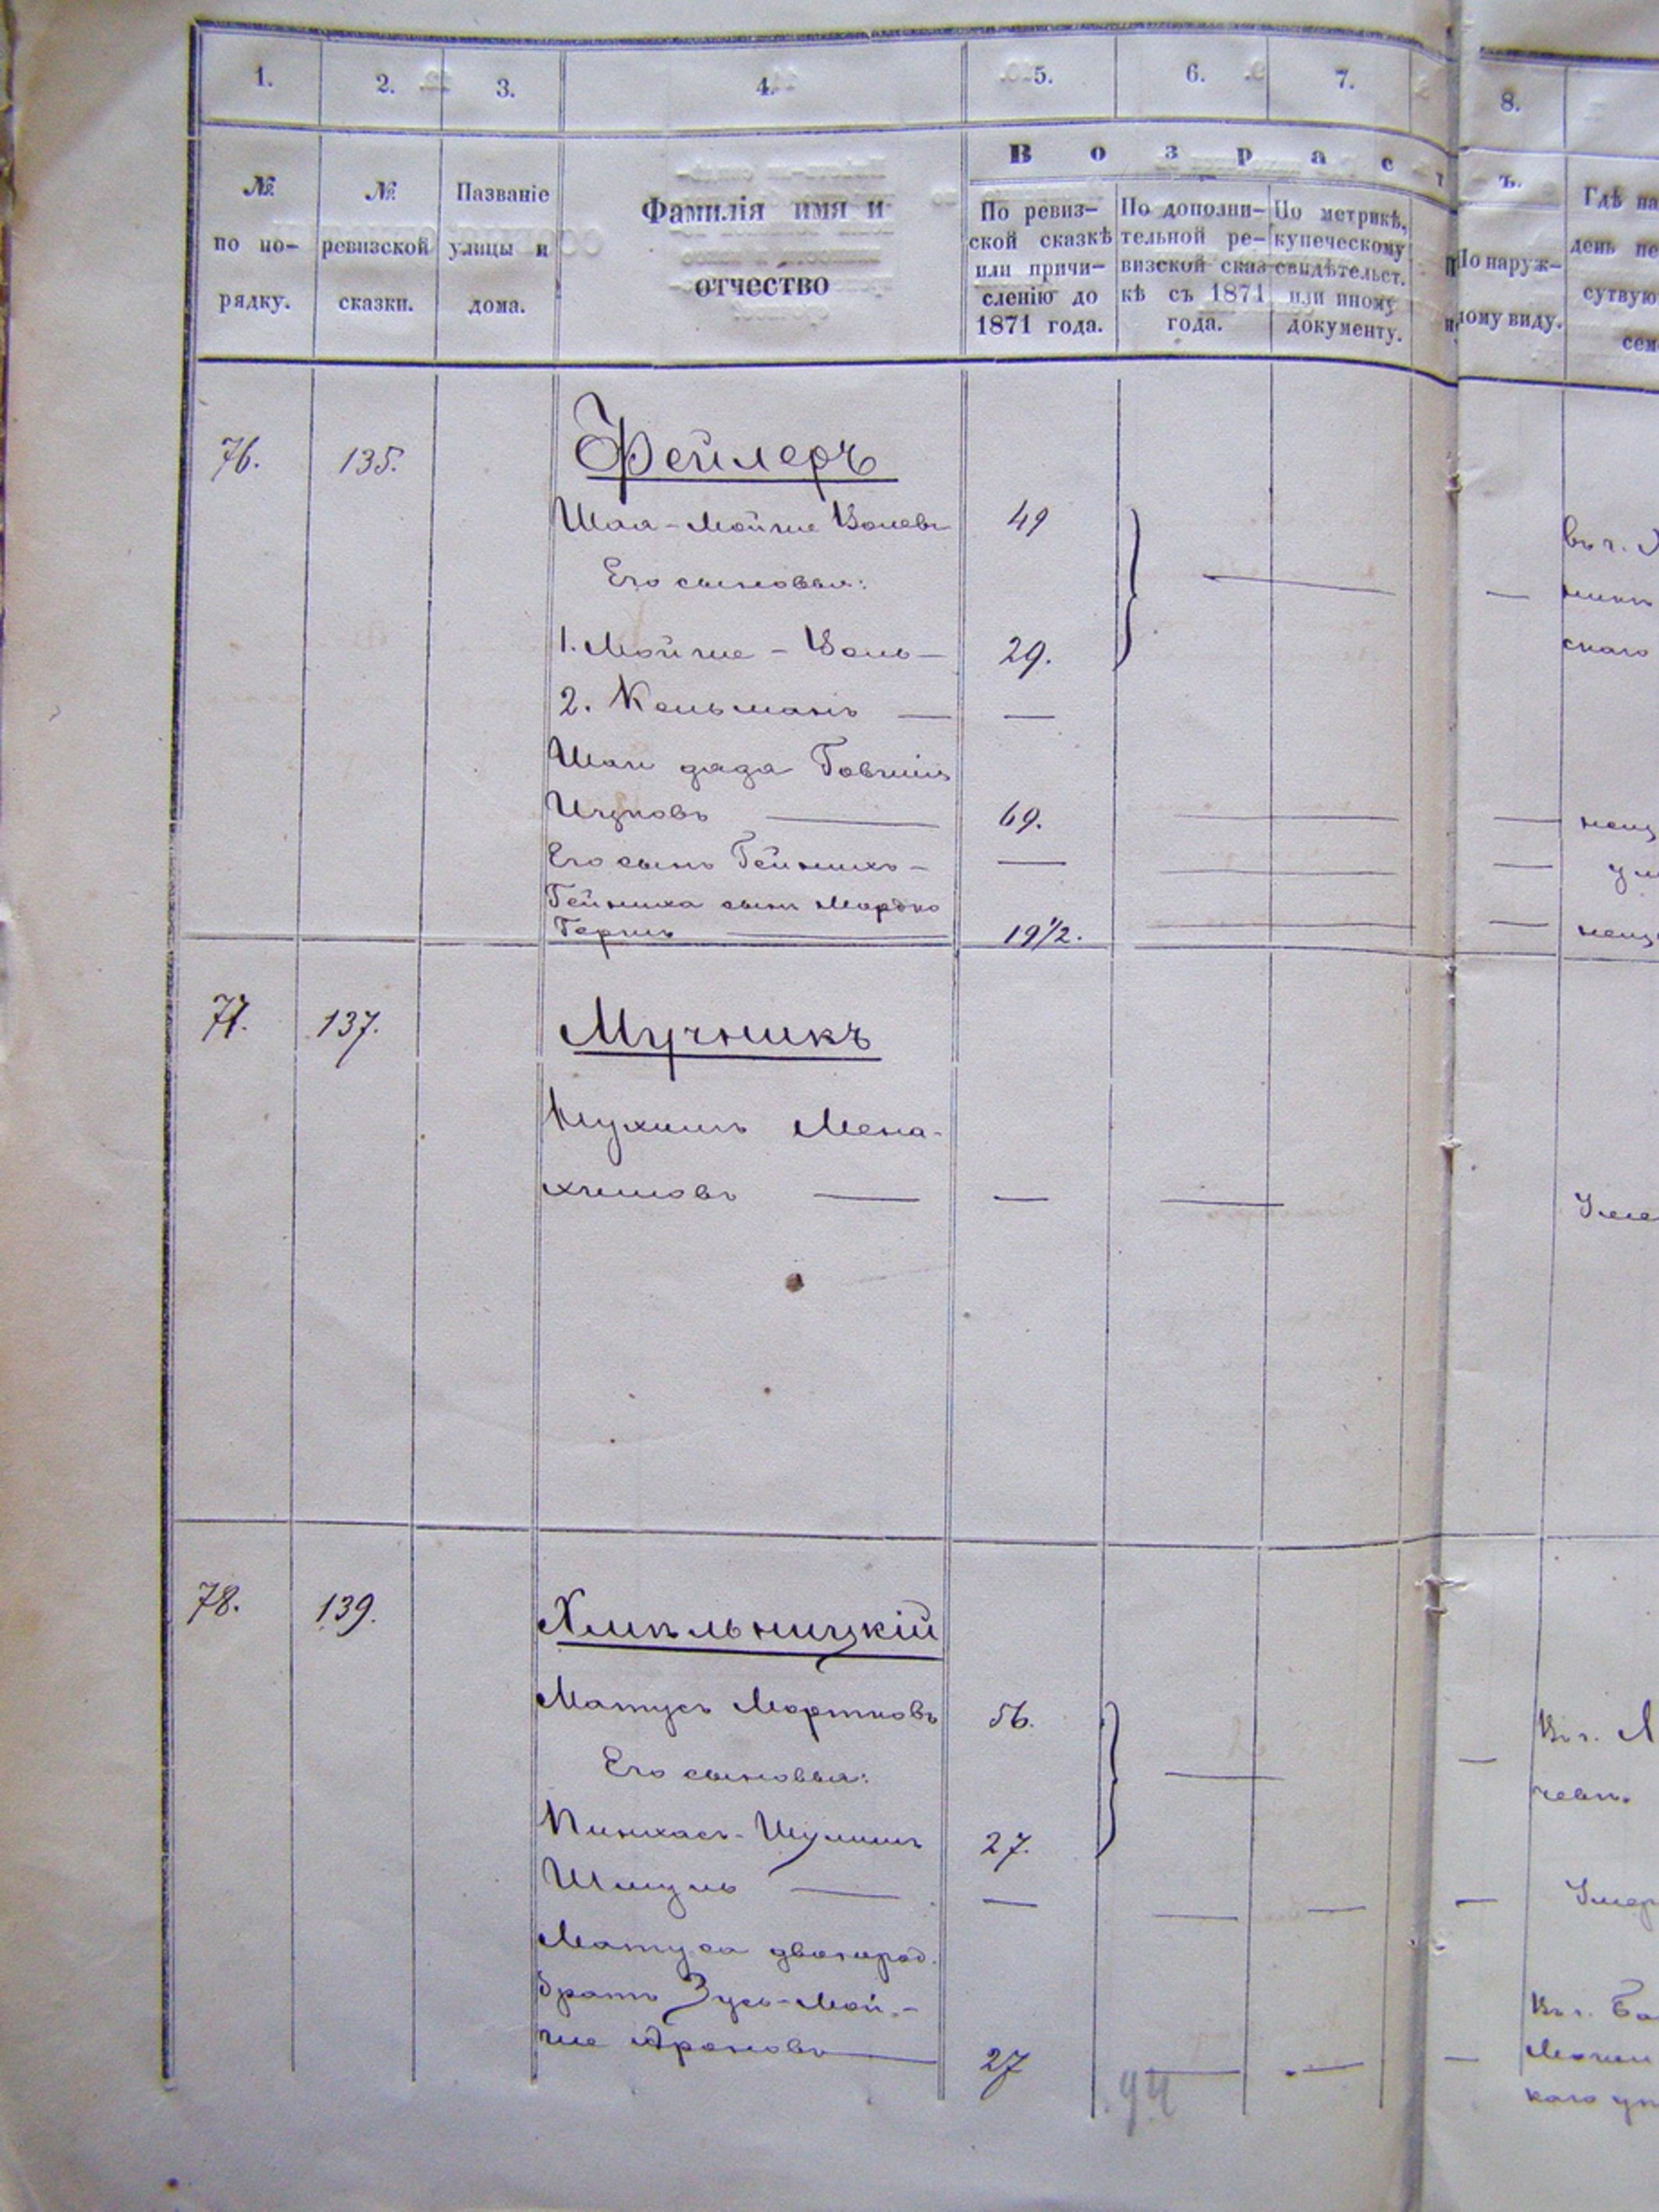 1. 2. 3. 4. 5. 6. 7. 8.
№ по по-рядку.
№ ревизской сказки.
Названіе улицы и дома.
Фамилія имя и отчество
Возрастъ.
По ревиз-
ской сказкѣ
или причи-
сленію до
1871 года.
По дополни-
тельной ре-
визской сказ-
кѣ съ 1871
года.
По метрикѣ,
купеческому
свидѣтельст.
или иному
документу.
По наруж-
ному виду.
Гдѣ на
день пе
сутвую
сем
76. 135. Фейлеръ
Шая-Мойше Волевъ 49
Его сыновья:
1. Мойше - Воль - 29.
2. Кельманъ — —
Шаи дядя Говшія
Ицковъ — 69.
Его сынъ Гейнихъ - —
Гейниха сынъ Мордко
Гершъ — 19 1/2.
77. 137. Мучникъ
Нухимъ Мена-
химовъ — —
78. 139. Хмѣльницкій
Матусъ Мортковъ 56.
Его сыновья:
Пинхасъ-Шулимъ 27.
Шмуль — —
Матуса двоюрод.
братъ Зусь-Мой-
ше Ароновъ — 27